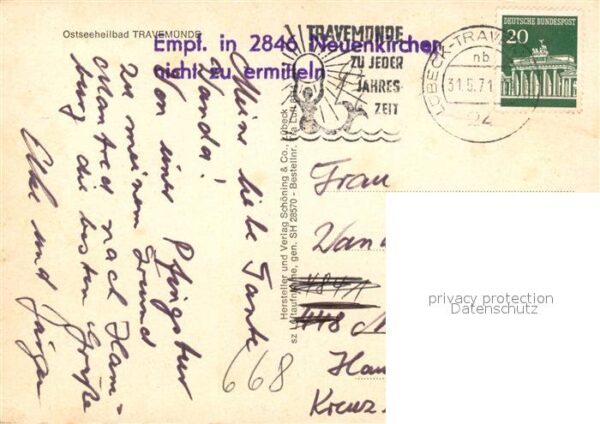 Ostseeheilbad TRAVEMÜNDE
Empf. in 2846 Neuenkirchen
nicht zu ermitteln
TRAVEMÜNDE
ZU JEDER
JAHRES-
ZEIT
LÜBECK-TRAV
nb
31.5.71
24
DEUTSCHE BUNDESPOST
20
Meine liebe Tante
Wanda!
Von einer Pfingsttour
zu meinem Freund
Manfred nach Ham-
burg die besten Grüße
Elke und Jürgen
668
Hersteller und Verlag Schöning & Co., Lübeck
sz Luftaufnahme, gen. SH 28570 - Bestellnr.
Frau
Wan
484A
448
Han
Kreuz.
privacy protection
Datenschutz